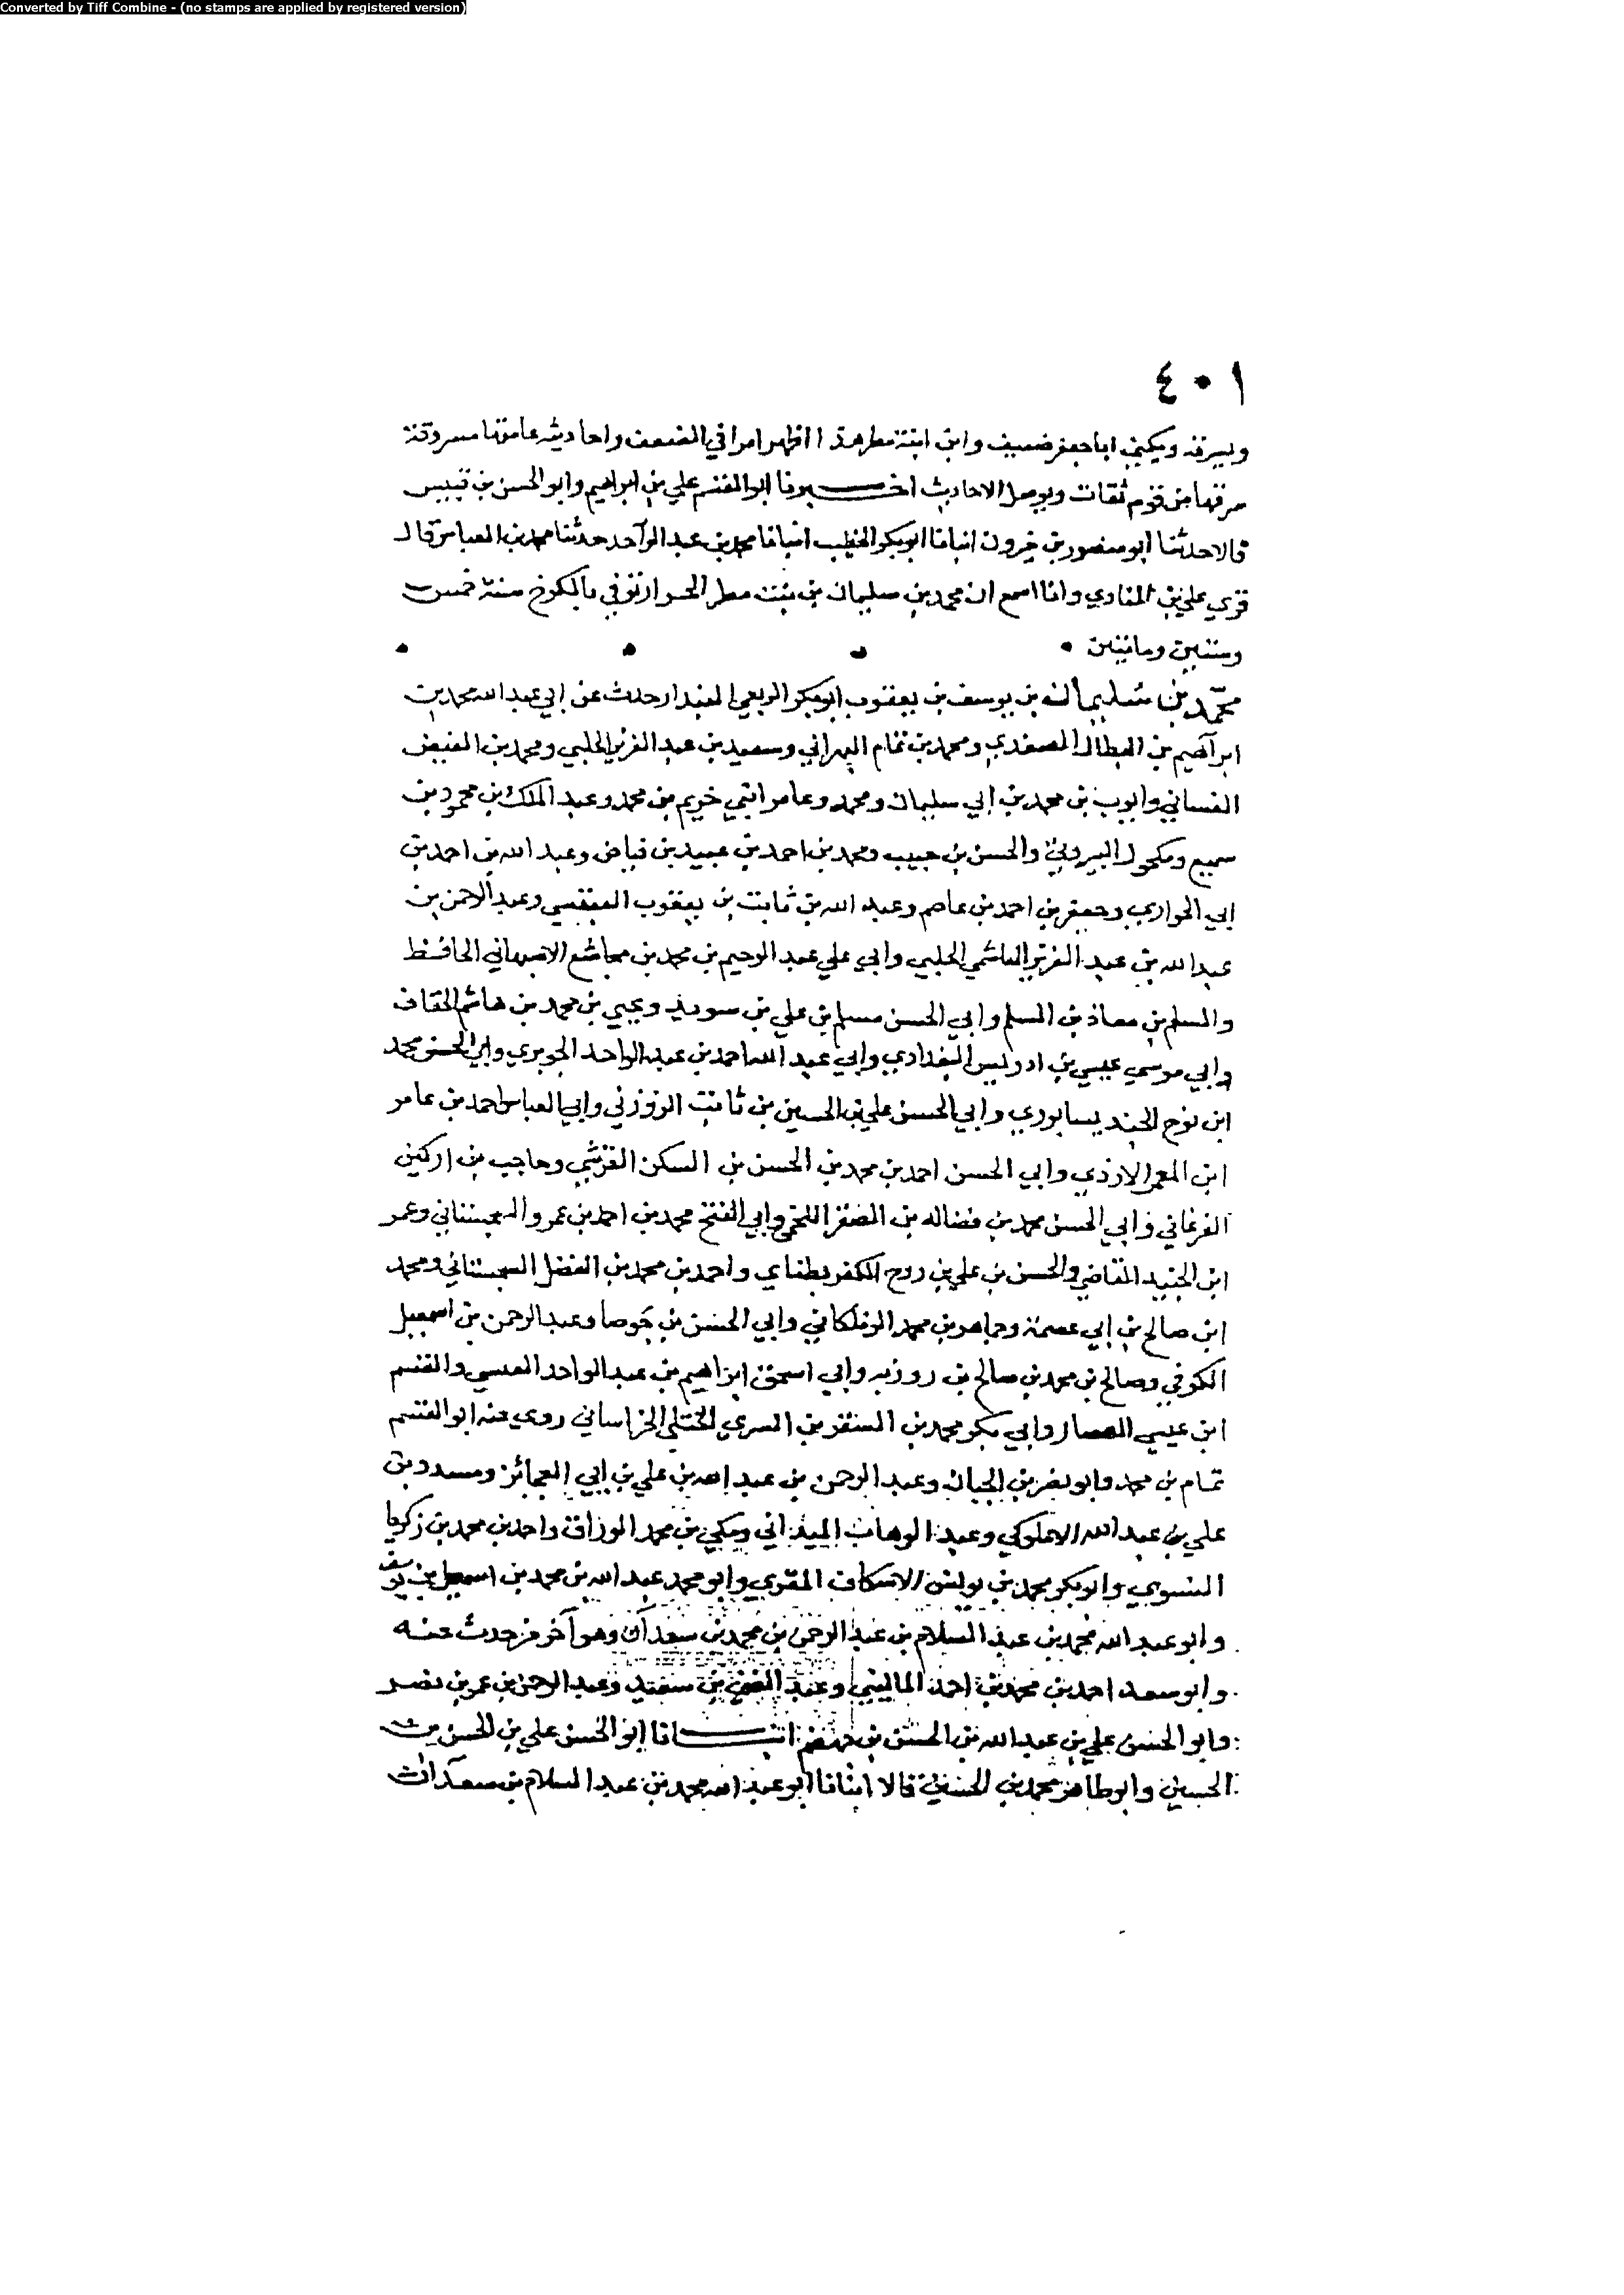 Converted by Tiff Combine - (no stamps are applied by registered version)
٤٠١
ويسرقه ويكنى ابا جعفر ضعيف وابن ابنة مطر هذا اظهر امرا في الضعف واحاديثه عامتها مسروقة
سرقها من قوم ثقات ويوصل الاحاديث اخـــبرنا ابو القسم علي بن ابراهيم وابو الحسن بن قبيس
قالا حدثنا ابو منصور بن خيرون انبانا ابو بكر الخطيب انبانا محمد بن عبد الواحد حدثنا محمد بن العباس قال
قري علي بن المنادي وانا اسمع ان محمد بن سليمان بن بنت مطر الخراز توفي بالكرخ سنة خمس
وستين ومائتين
محمد بن سليمان بن يوسف بن يعقوب ابو بكر الربعي البندار حدث عن ابي عبد الله محمد بن
ابراهيم بن البطال الصعدي ومحمد بن تمام البهراني وسعيد بن عبد العزيز الحلبي ومحمد بن الفيض
الغساني وايوب بن محمد بن ابي سليمان ومحمد وعامر ابني خريم بن محمد وعبد الملك بن محمود بن
سميع ومكحول البيروتي والحسن بن حبيب ومحمد بن احمد بن عبيد بن فياض وعبد الله بن احمد بن
ابي الحواري وجعفر بن احمد بن عاصم وعبد الله بن ثابت بن يعقوب العبقسي وعبد الرحمن بن
عبد الله بن عبد العزيز الهاشمي الحلبي وابي علي عبد الرحيم بن محمد بن مجاشع الاصبهاني الحافظ
والسلم بن معاذ بن السلم وابي الحسن مسلم بن علي بن سويد ويحيي بن محمد بن هاشم الخفاف
وابي موسي عيسي بن ادريس البغدادي وابي عبد الله احمد بن عبد الواحد الجوبري وابي الحسن محمد
ابن نوح الجنديسابوري وابي الحسن علي بن الحسين بن ثابت الزوزني وابي العباس احمد بن عامر
ابن المعمر الازدي وابي الحسن احمد بن محمد بن الحسن بن السكن القرشي وحاجب بن اركين
الفرغاني وابي الحسن محمد بن فضاله بن الصقر اللخمي وابي الفتح محمد بن احمد بن عمرو السجستاني وعمر
ابن الجنيد القاضي والحسن بن علي بن روح الكفربطناي واحمد بن محمد بن الفضل السجستاني ومحمد
ابن صالح بن ابي عصمة وجماهر بن محمد الزملكاني وابي الحسن بن جوصا وعبد الرحمن بن اسمعيل
الكوفي وصالح بن محمد بن صالح بن روزبه وابي اسحق ابراهيم بن عبد الواحد العبسي والقسم
ابن عيسي العصار وابي بكر محمد بن السنقر بن السري الختلي الخراساني روي عنه ابو القسم
تمام بن محمد وابو نصر بن الجبان وعبد الرحمن بن عبد الله بن علي بن ابي العجائز ومسدد بن
علي بن عبد الله الاملوكي وعبد الوهاب الميداني ومكي بن محمد الوراق واحمد بن محمد بن زكريا
النسوي وابو بكر محمد بن يونس الاسكاف المقري وابو محمد عبد الله بن محمد بن اسمعيل بن يوسف
وابو عبد الله محمد بن عبد السلام بن عبد الرحمن بن محمد بن سعدان وهو آخر من حدث عنه
وابو سعد احمد بن محمد بن احمد الماليني وعبد الغني بن سعيد وعبد الرحمن بن عمر بن نصر
وابو الحسن علي بن عبد الله بن الحسن بن جهضم انبـــانا ابو الحسن علي بن الحسن بن
الحسين وابو طاهر محمد بن الحسين قالا انبانا ابو عبد الله محمد بن عبد السلام بن سعدان